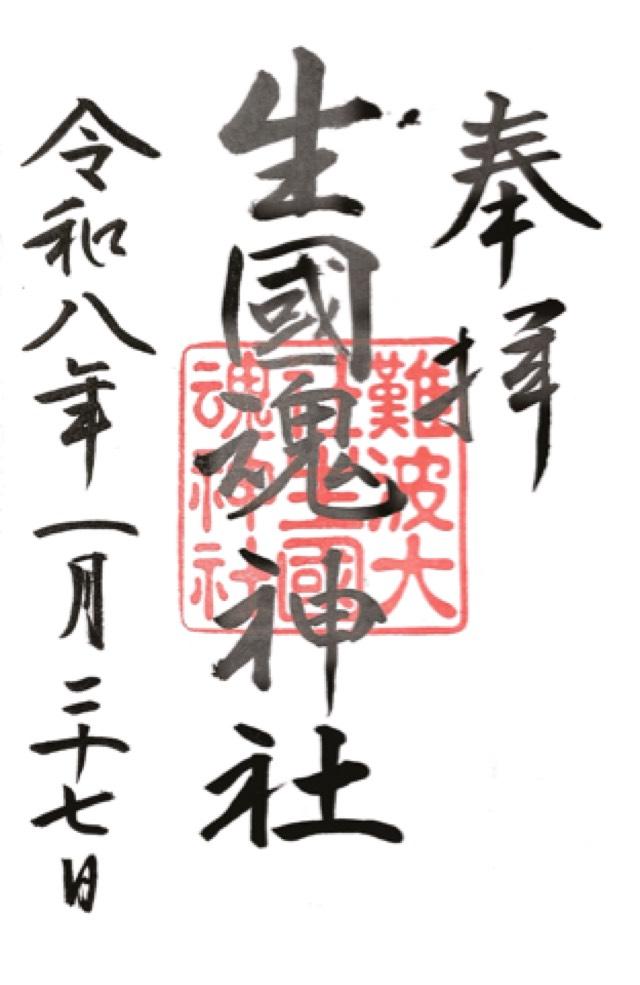 奉拝
生國魂神社
難波大
社生國
魂神社
令和八年一月二十七日